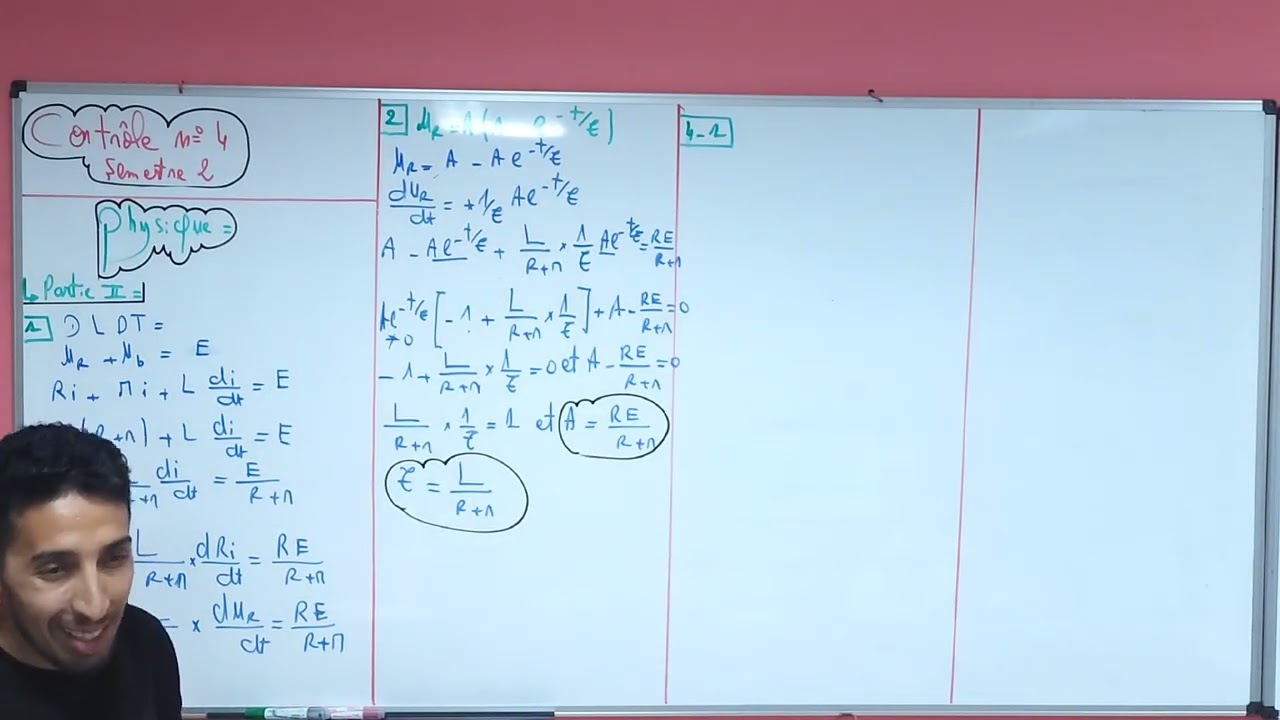 Contrôle n° 4
Semestre 2
Physique =
↳ Partie II =
1 D L D T =
u_R + u_b = E
Ri + ri + L di/dt = E
(R+r) + L di/dt = E
di/dt = E/(R+r)
L/(R+r) × dRi/dt = RE/(R+r)
× du_R/dt = RE/(R+r)
2 u_R = A(1 - e^(-t/τ))
u_R = A - A e^(-t/τ)
du_R/dt = +1/τ A e^(-t/τ)
A - A e^(-t/τ) + L/(R+r) × 1/τ A e^(-t/τ) = RE/(R+r)
A e^(-t/τ) [-1 + L/(R+r) × 1/τ] + A - RE/(R+r) = 0
≠0
-1 + L/(R+r) × 1/τ = 0 et A - RE/(R+r) = 0
L/(R+r) × 1/τ = 1 et A = RE/(R+r)
τ = L/(R+r)
4-1